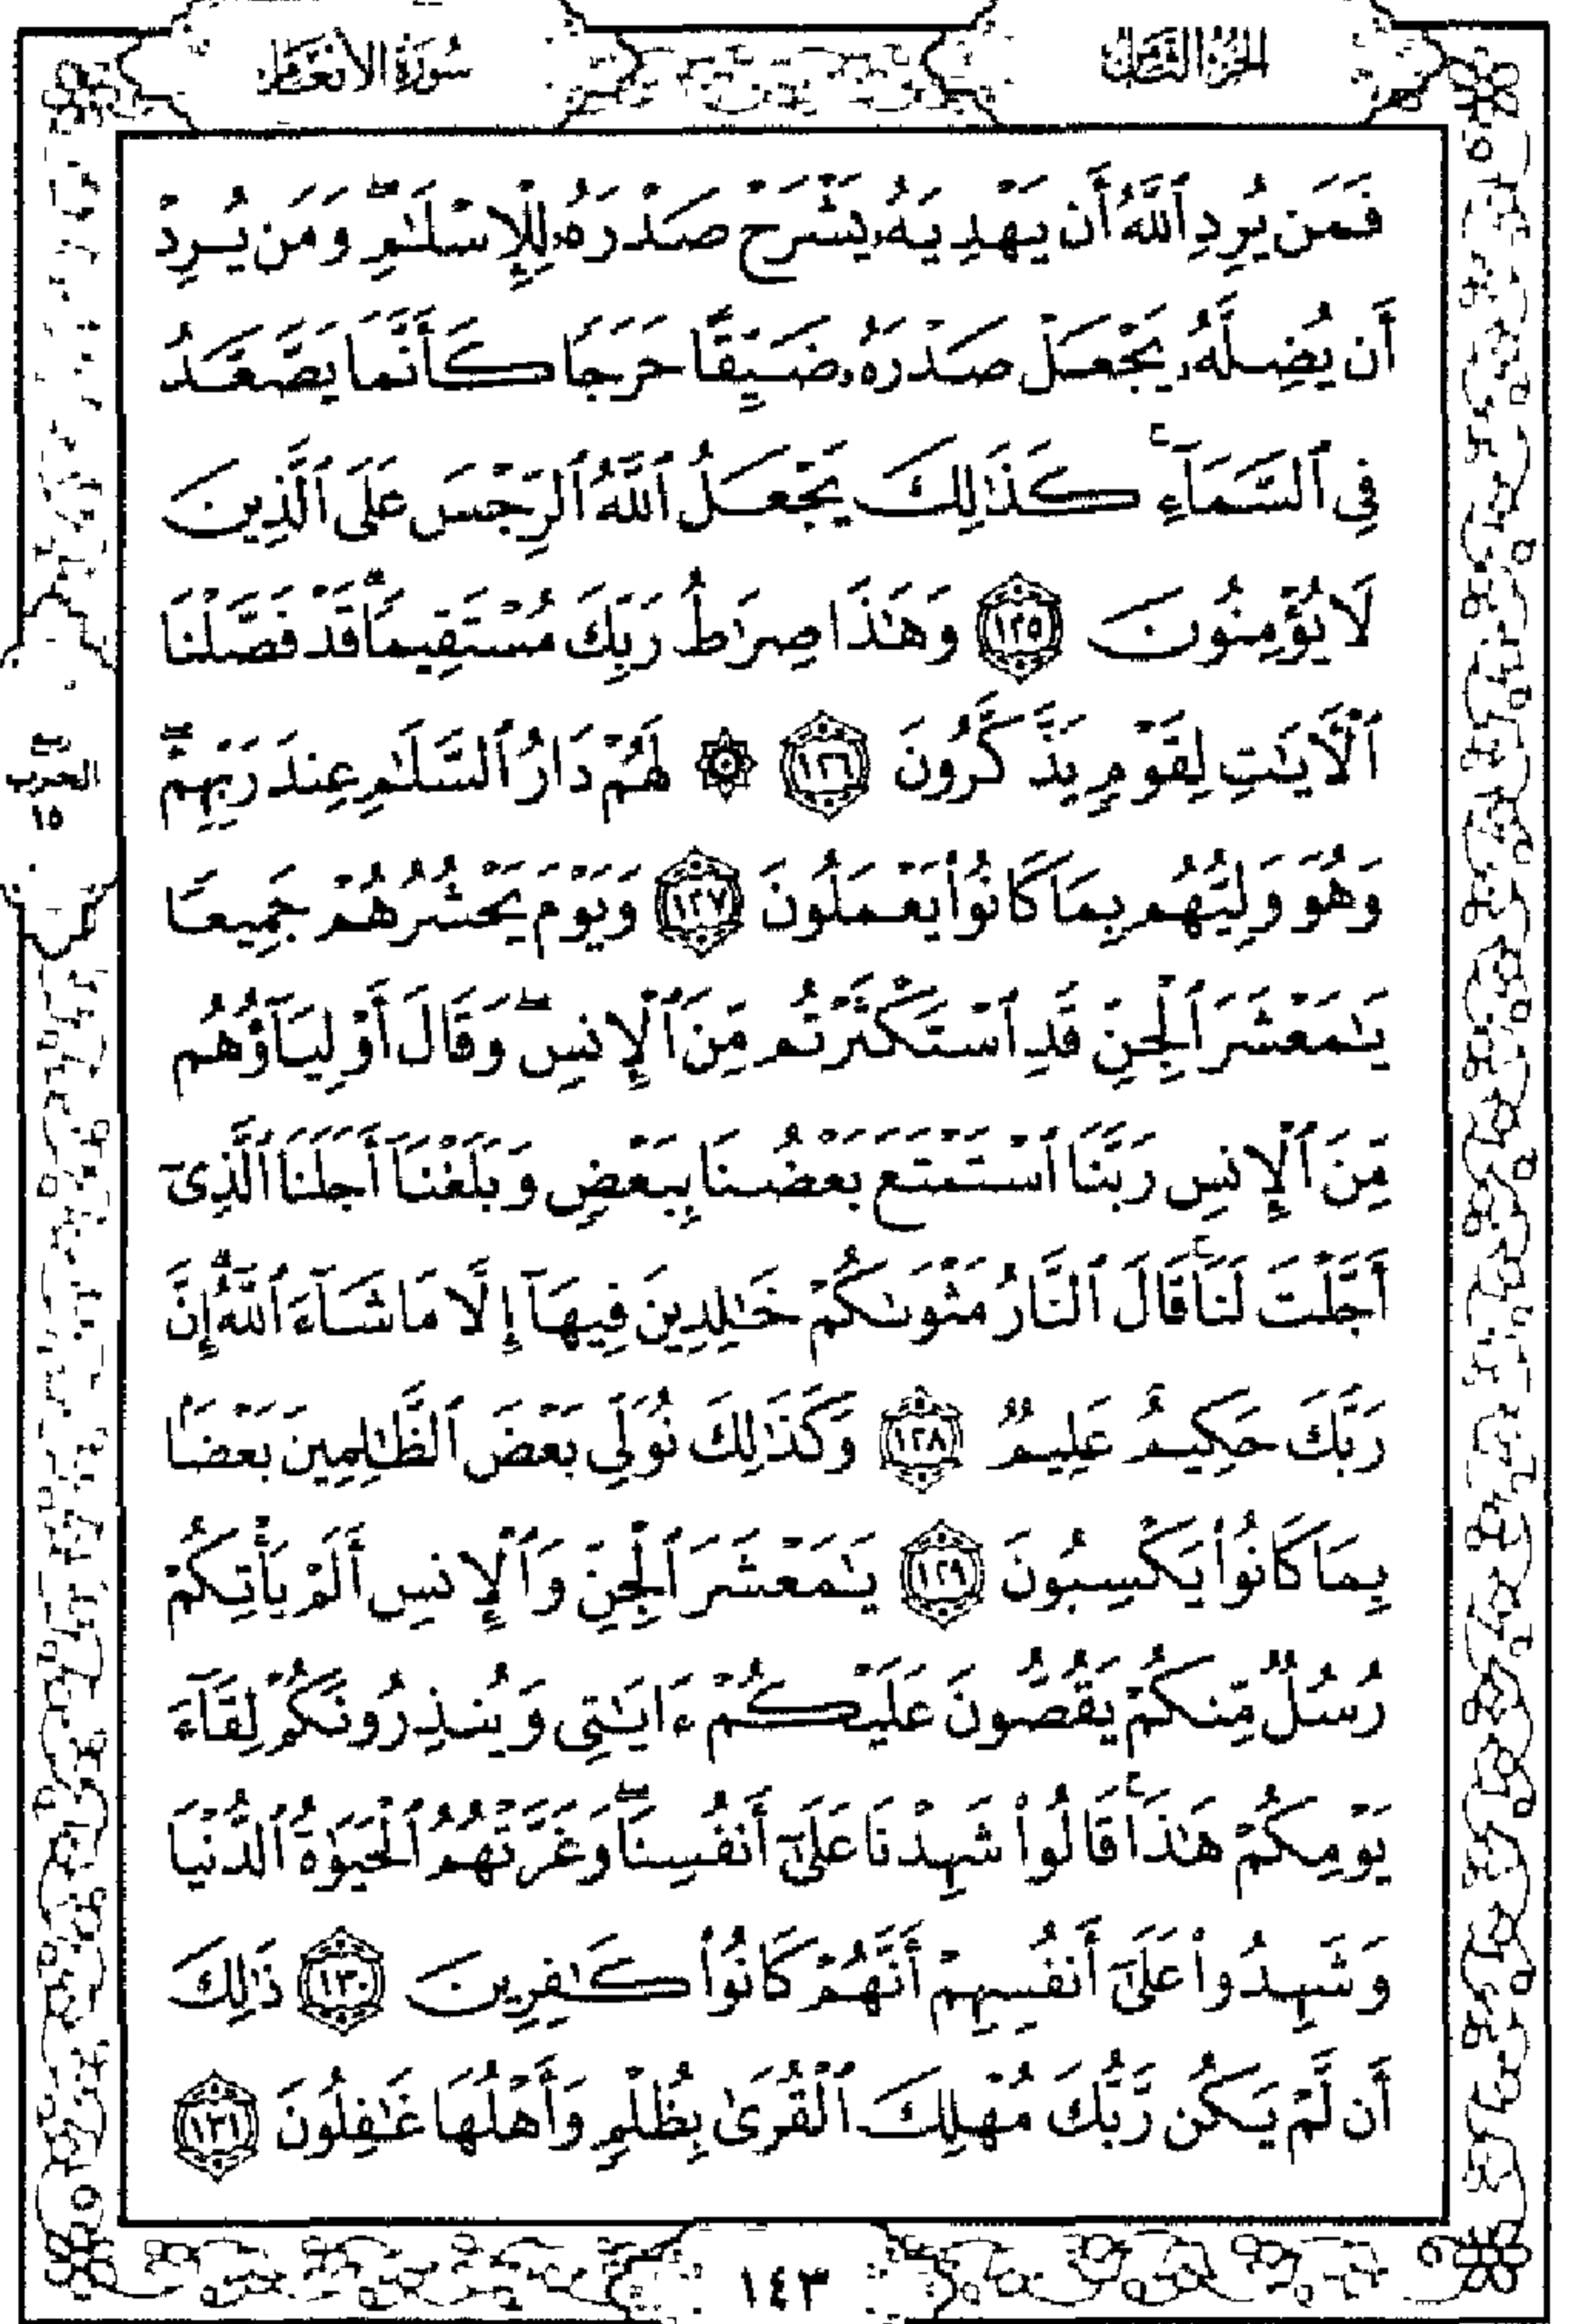 الجزء الثامن
سورة الأنعام
فَمَن يُرِدِ ٱللَّهُ أَن يَهْدِيَهُۥ يَشْرَحْ صَدْرَهُۥ لِلْإِسْلَٰمِ ۖ وَمَن يُرِدْ
أَن يُضِلَّهُۥ يَجْعَلْ صَدْرَهُۥ ضَيِّقًا حَرَجًا كَأَنَّمَا يَصَّعَّدُ
فِى ٱلسَّمَآءِ ۚ كَذَٰلِكَ يَجْعَلُ ٱللَّهُ ٱلرِّجْسَ عَلَى ٱلَّذِينَ
لَا يُؤْمِنُونَ ١٢٥ وَهَٰذَا صِرَٰطُ رَبِّكَ مُسْتَقِيمًا ۗ قَدْ فَصَّلْنَا
ٱلْءَايَٰتِ لِقَوْمٍ يَذَّكَّرُونَ ١٢٦ ۞ لَهُمْ دَارُ ٱلسَّلَٰمِ عِندَ رَبِّهِمْ ۖ
الحزب
١٥
وَهُوَ وَلِيُّهُم بِمَا كَانُوا۟ يَعْمَلُونَ ١٢٧ وَيَوْمَ يَحْشُرُهُمْ جَمِيعًا
يَٰمَعْشَرَ ٱلْجِنِّ قَدِ ٱسْتَكْثَرْتُم مِّنَ ٱلْإِنسِ ۖ وَقَالَ أَوْلِيَآؤُهُم
مِّنَ ٱلْإِنسِ رَبَّنَا ٱسْتَمْتَعَ بَعْضُنَا بِبَعْضٍ وَبَلَغْنَآ أَجَلَنَا ٱلَّذِىٓ
أَجَّلْتَ لَنَا ۚ قَالَ ٱلنَّارُ مَثْوَىٰكُمْ خَٰلِدِينَ فِيهَآ إِلَّا مَا شَآءَ ٱللَّهُ ۗ إِنَّ
رَبَّكَ حَكِيمٌ عَلِيمٌ ١٢٨ وَكَذَٰلِكَ نُوَلِّى بَعْضَ ٱلظَّٰلِمِينَ بَعْضًۢا
بِمَا كَانُوا۟ يَكْسِبُونَ ١٢٩ يَٰمَعْشَرَ ٱلْجِنِّ وَٱلْإِنسِ أَلَمْ يَأْتِكُمْ
رُسُلٌ مِّنكُمْ يَقُصُّونَ عَلَيْكُمْ ءَايَٰتِى وَيُنذِرُونَكُمْ لِقَآءَ
يَوْمِكُمْ هَٰذَا ۚ قَالُوا۟ شَهِدْنَا عَلَىٰٓ أَنفُسِنَا ۖ وَغَرَّتْهُمُ ٱلْحَيَوٰةُ ٱلدُّنْيَا
وَشَهِدُوا۟ عَلَىٰٓ أَنفُسِهِمْ أَنَّهُمْ كَانُوا۟ كَٰفِرِينَ ١٣٠ ذَٰلِكَ
أَن لَّمْ يَكُن رَّبُّكَ مُهْلِكَ ٱلْقُرَىٰ بِظُلْمٍ وَأَهْلُهَا غَٰفِلُونَ ١٣١
١٤٣